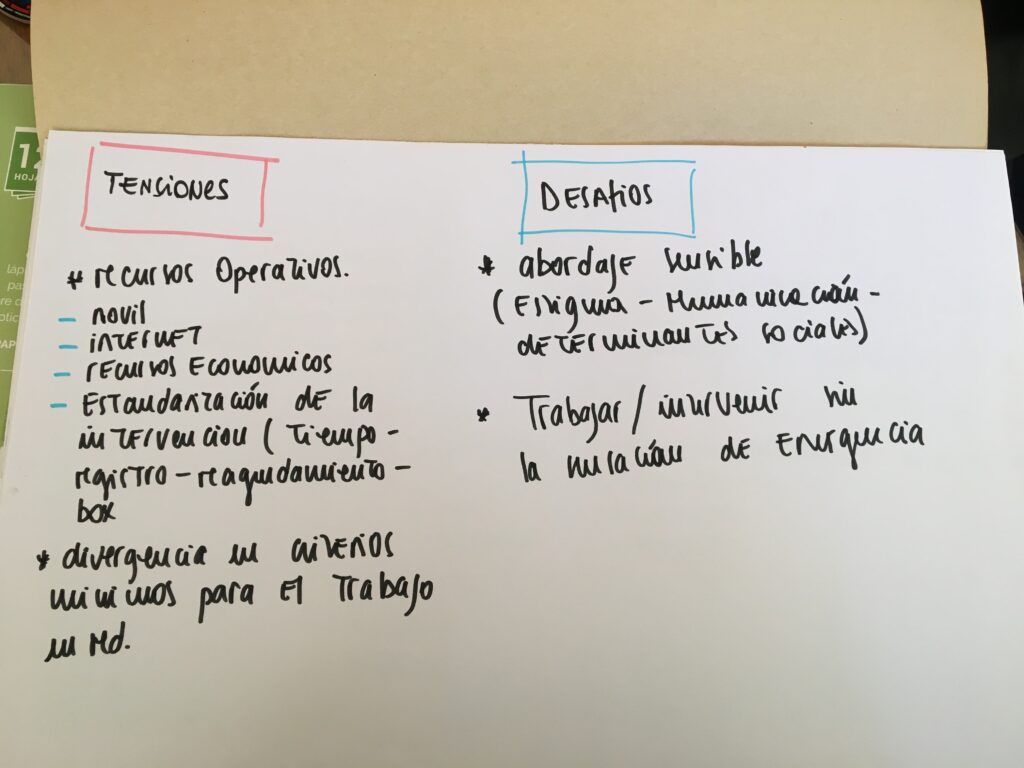 TENSIONES
* recursos Operativos.
- movil
- internet
- recursos economicos
- Estandarización de la
intervencion ( Tiempo -
registro - reagudamiento -
box
* divergencia en criterios
minimos para el Trabajo
en red.
DESAFIOS
* abordaje sensible
( Estigma - Humanización -
determinantes sociales)
* Trabajar / intervenir sin
la noción de Emergencia
12
HOJA